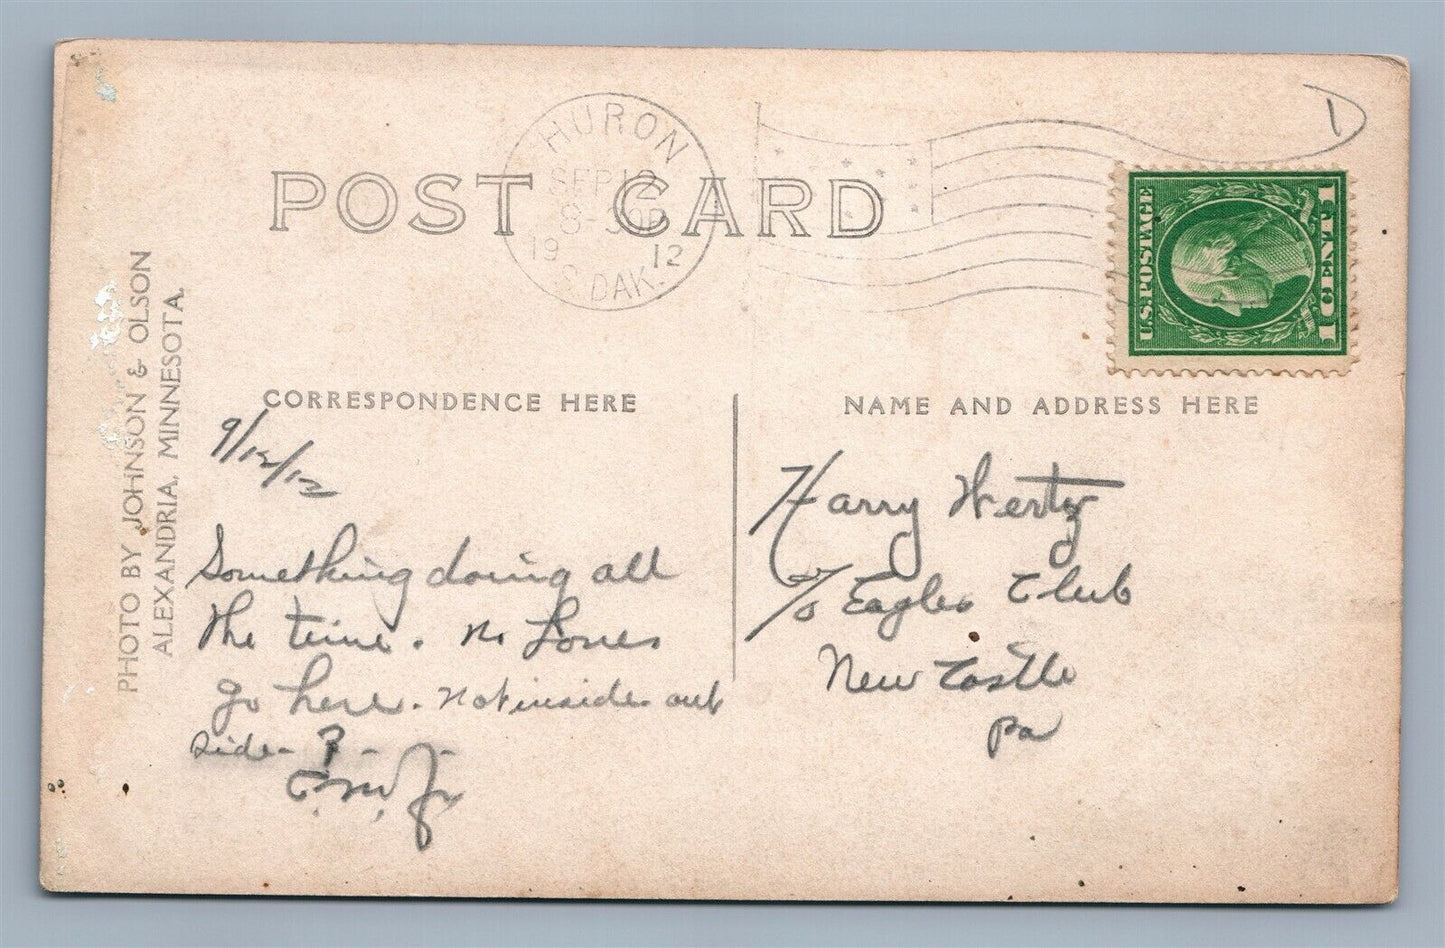 HURON
SEP 12
8-30P
19 12
S. DAK.
POST CARD
U.S. POSTAGE
1 CENT 1
PHOTO BY JOHNSON & OLSON
ALEXANDRIA, MINNESOTA.
CORRESPONDENCE HERE
9/12/12
Something doing all
the time. no
go here. not inside out
side - ? - -
NAME AND ADDRESS HERE
Harry Wertz
c/o Eagles Club
New Castle
Pa